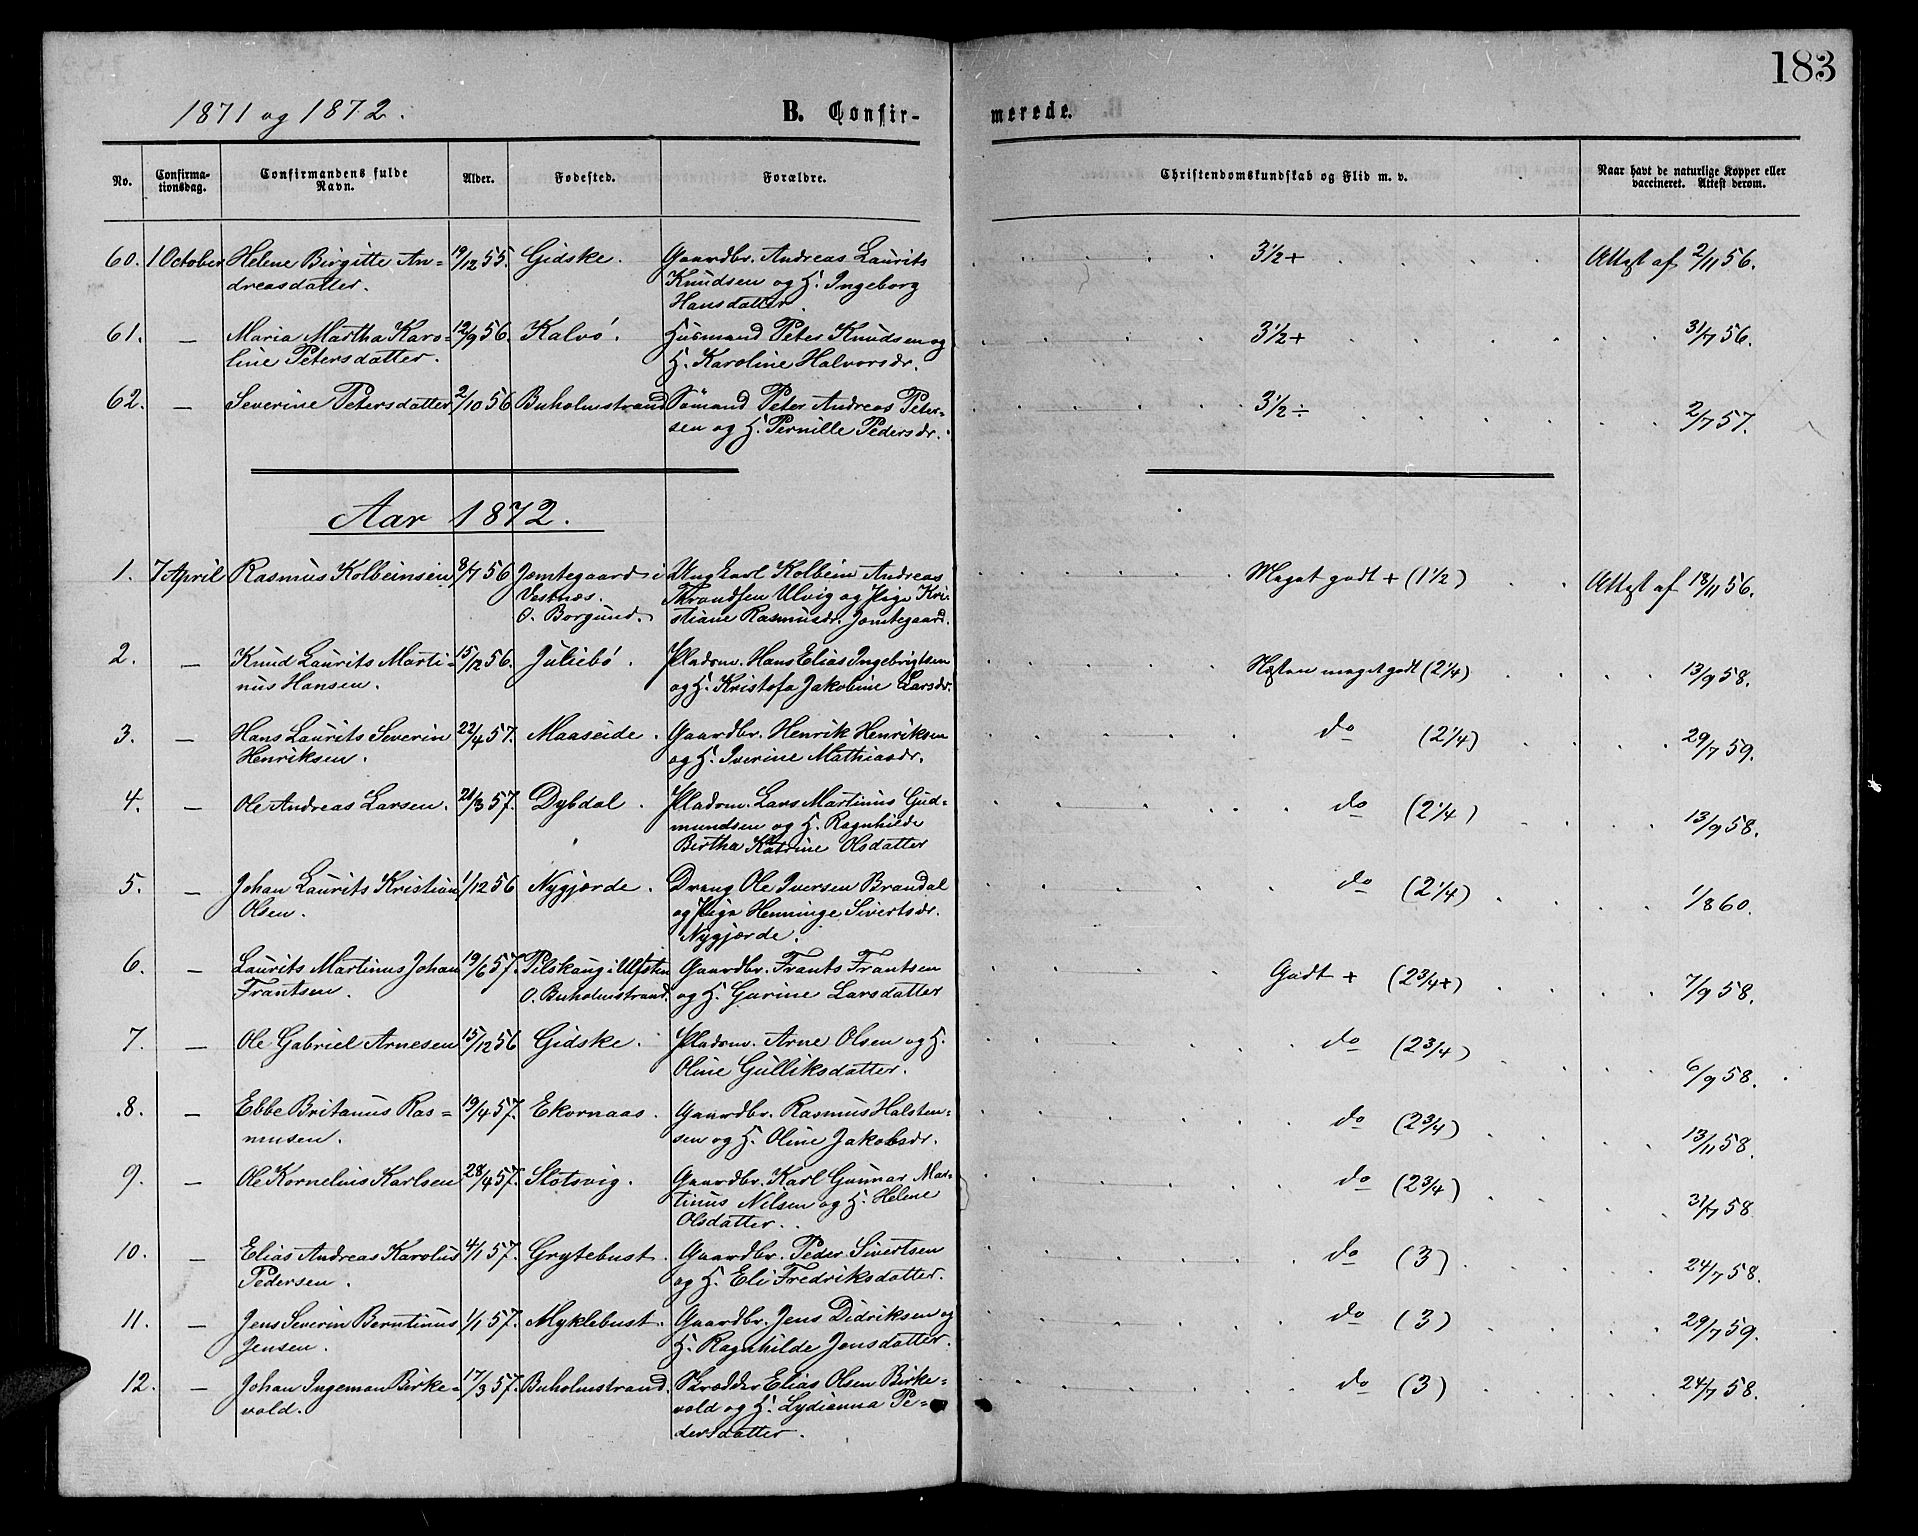 183
1871 og 1872.
B. Confir-
merede.
No.
Confirma-
tionsdag.
Confirmandens fulde
Navn.
Alder.
Fødested.
Forældre.
Christendomskundskab og Flid m. v.
Naar havt de naturlige Kopper eller
vaccineret. Attest derom.
60. 1 October Helene Birgitte An- 19/12 55. Gidske. Gaardbr. Andreas Laurits 3½+ Attest af 2/11 56.
dreasdatter. Knudsen og H. Ingeborg
Hansdatter.
61. — Maria Martha Karo- 12/9 56. Kalvø. Husmand Peter Knudsen og 3½+ 31/7 56.
line Petersdatter. H. Karoline Halvorsdr.
62. — Severine Petersdatter 2/10 56 Buholmstrand Sømand Peter Andreas Peter- 3½÷ 2/7 57.
sen og H. Pernille Pedersdr.
Aar 1872.
1. 7 April Rasmus Kolbeinsen 8/7 56 Jomtegaard i Ungkarl Kolbein Andreas Meget godt + (1½) Attest af 18/11 56.
Vestnæs. Throndsen Ulvig og Pige Kri-
O. Borgund. stiane Rasmusdr. Jomtegaard.
2. — Knud Laurits Marti- 15/12 56. Juliebø. Pladsm. Hans Elias Ingebrigtsen Næsten meget godt (2¼) 13/9 58.
nus Hansen. og H. Kristofa Jakobine Larsdr.
3. — Hans Laurits Severin 22/4 57. Maaseide. Gaardbr. Henrik Henriksen do (2¼) 29/7 59.
Henriksen. og H. Iverine Mathiasdr.
4. — Ole Andreas Larsen. 21/3 57. Dybdal. Pladsm. Lars Martinus Gud- do (2¼) 13/9 58.
mundsen og H. Ragnhilde
Birtha Katrine Olsdatter
5. — Johan Laurits Kristian 1/12 56 Nygjærde. Dreng Ole Iversen Brandal do (2¼) 1/8 60.
Olsen. og Pige Henninge Sivertsdr.
Nygjærde.
6. — Laurits Martinus Johan 19/6 57. Pilskaug i Ulfsten Gaardbr. Frants Frantsen Godt + (2¾+) 7/9 58.
Frantsen. O. Buholmstrand. og H. Gurine Larsdatter
7. — Ole Gabriel Arnesen 15/12 56 Gidske. Pladsm. Arne Olsen og H. do (2¾) 6/9 58.
Oline Gulliksdatter.
8. — Ebbe Britanus Ras- 19/4 57. Ekornaas. Gaardbr. Rasmus Halsten- do (2¾) 13/11 58.
musen. sen og H. Oline Jakobsdr.
9. — Ole Kornelius Karlsen 28/4 57. Slotsvig. Gaardbr. Karl Gunnar Mar- do (2¾) 31/7 58
tinus Nilsen og H. Helene
Olsdatter.
10. — Elias Andreas Karolus 4/1 57. Grytebust. Gaardbr. Peder Sivertsen do (3) 24/7 58.
Pedersen. og H. Eli Fredriksdatter.
11. — Jens Severin Berntinus 1/1 57. Myklebust. Gaardbr. Jens Didriksen og do (3) 29/7 59.
Jensen. H. Ragnhilde Jonsdatter.
12. — Johan Ingeman Birke- 17/3 57. Buholmstrand. Skrædder Elias Olsen Birke- do (3) 24/7 58.
vold. vold og H. Lydianna Pe-
dersdatter.